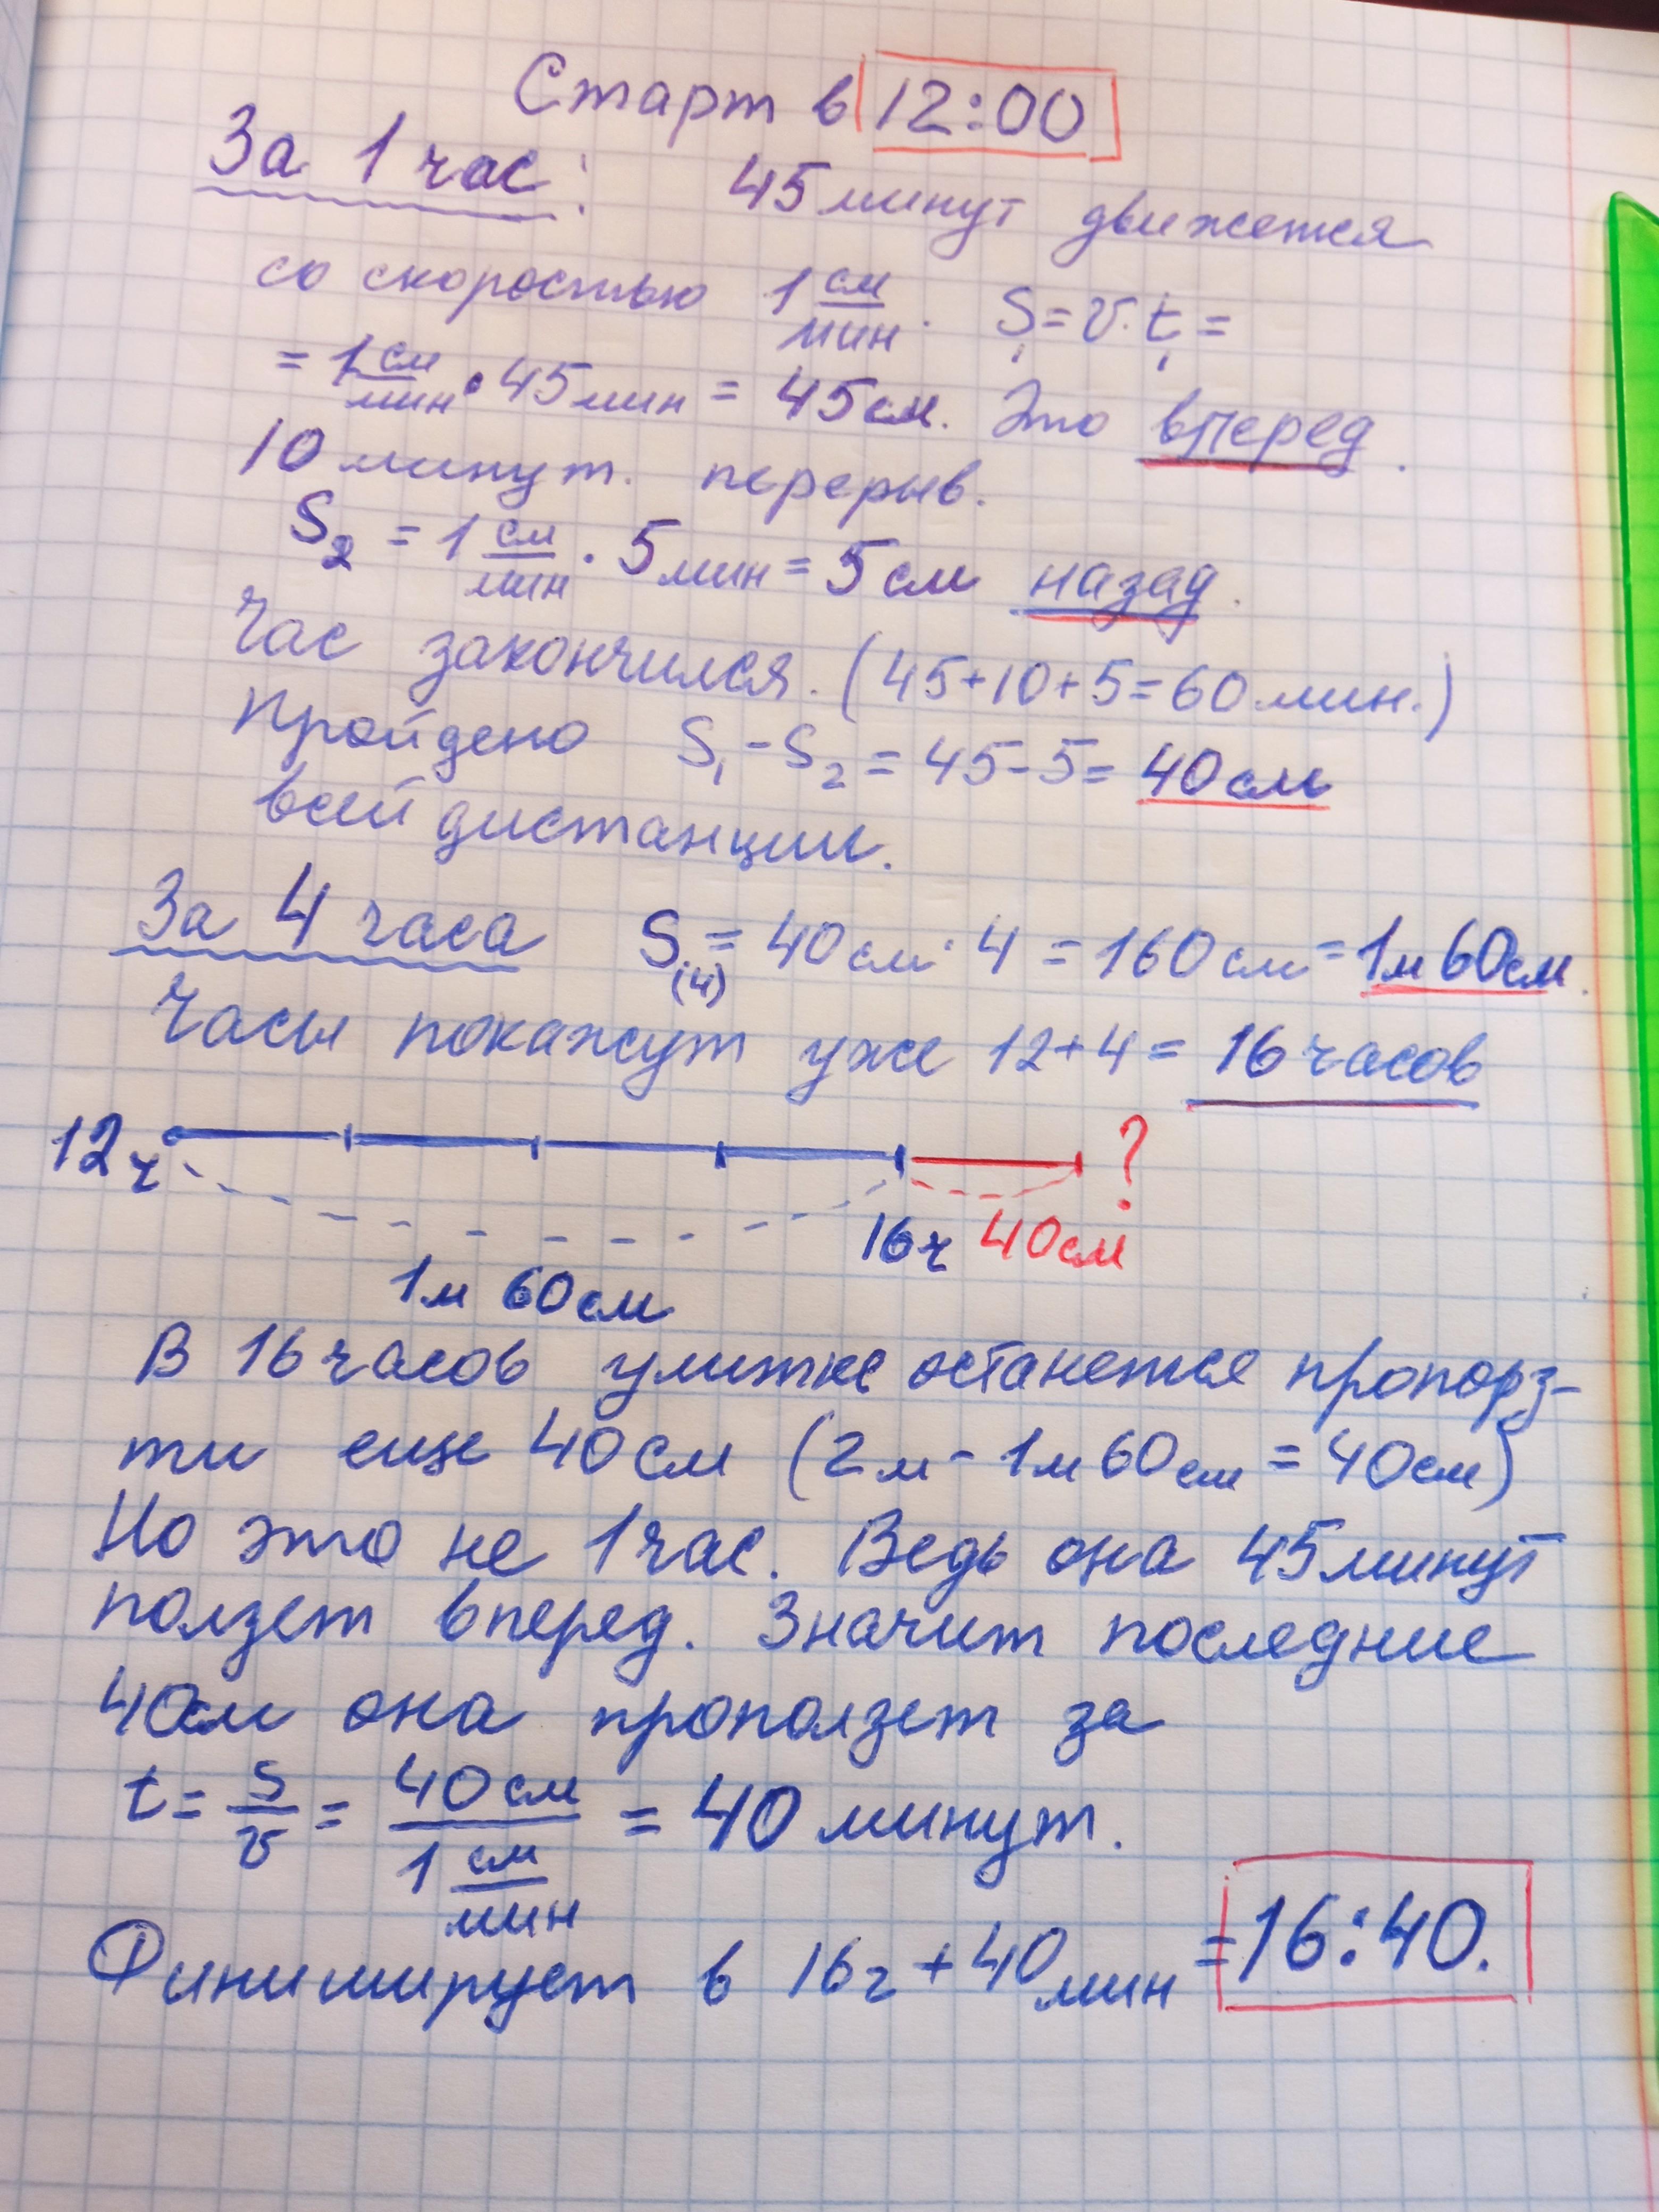 Старт в 12:00
За 1 час: 45 минут движется
со скоростью 1 см/мин. S₁ = v · t₁ =
= 1 см/мин · 45 мин = 45 см. Это вперед.
10 минут. перерыв.
S₂ = 1 см/мин · 5 мин = 5 см назад.
Час закончился. (45+10+5=60 мин.)
Пройдено S₁ - S₂ = 45 - 5 = 40 см
всей дистанции.
За 4 часа S(4) = 40 см · 4 = 160 см = 1 м 60 см.
Часы покажут уже 12+4 = 16 часов
12 ч ?
16 ч 40 см
1 м 60 см
В 16 часов улитке останется проползти
ти еще 40 см (2 м - 1 м 60 см = 40 см)
Но это не 1 час. Ведь она 45 минут
ползет вперед. Значит последние
40 см она проползет за
t = S/v = 40 см / 1 см/мин = 40 минут.
Финиширует в 16 ч + 40 мин = 16:40.